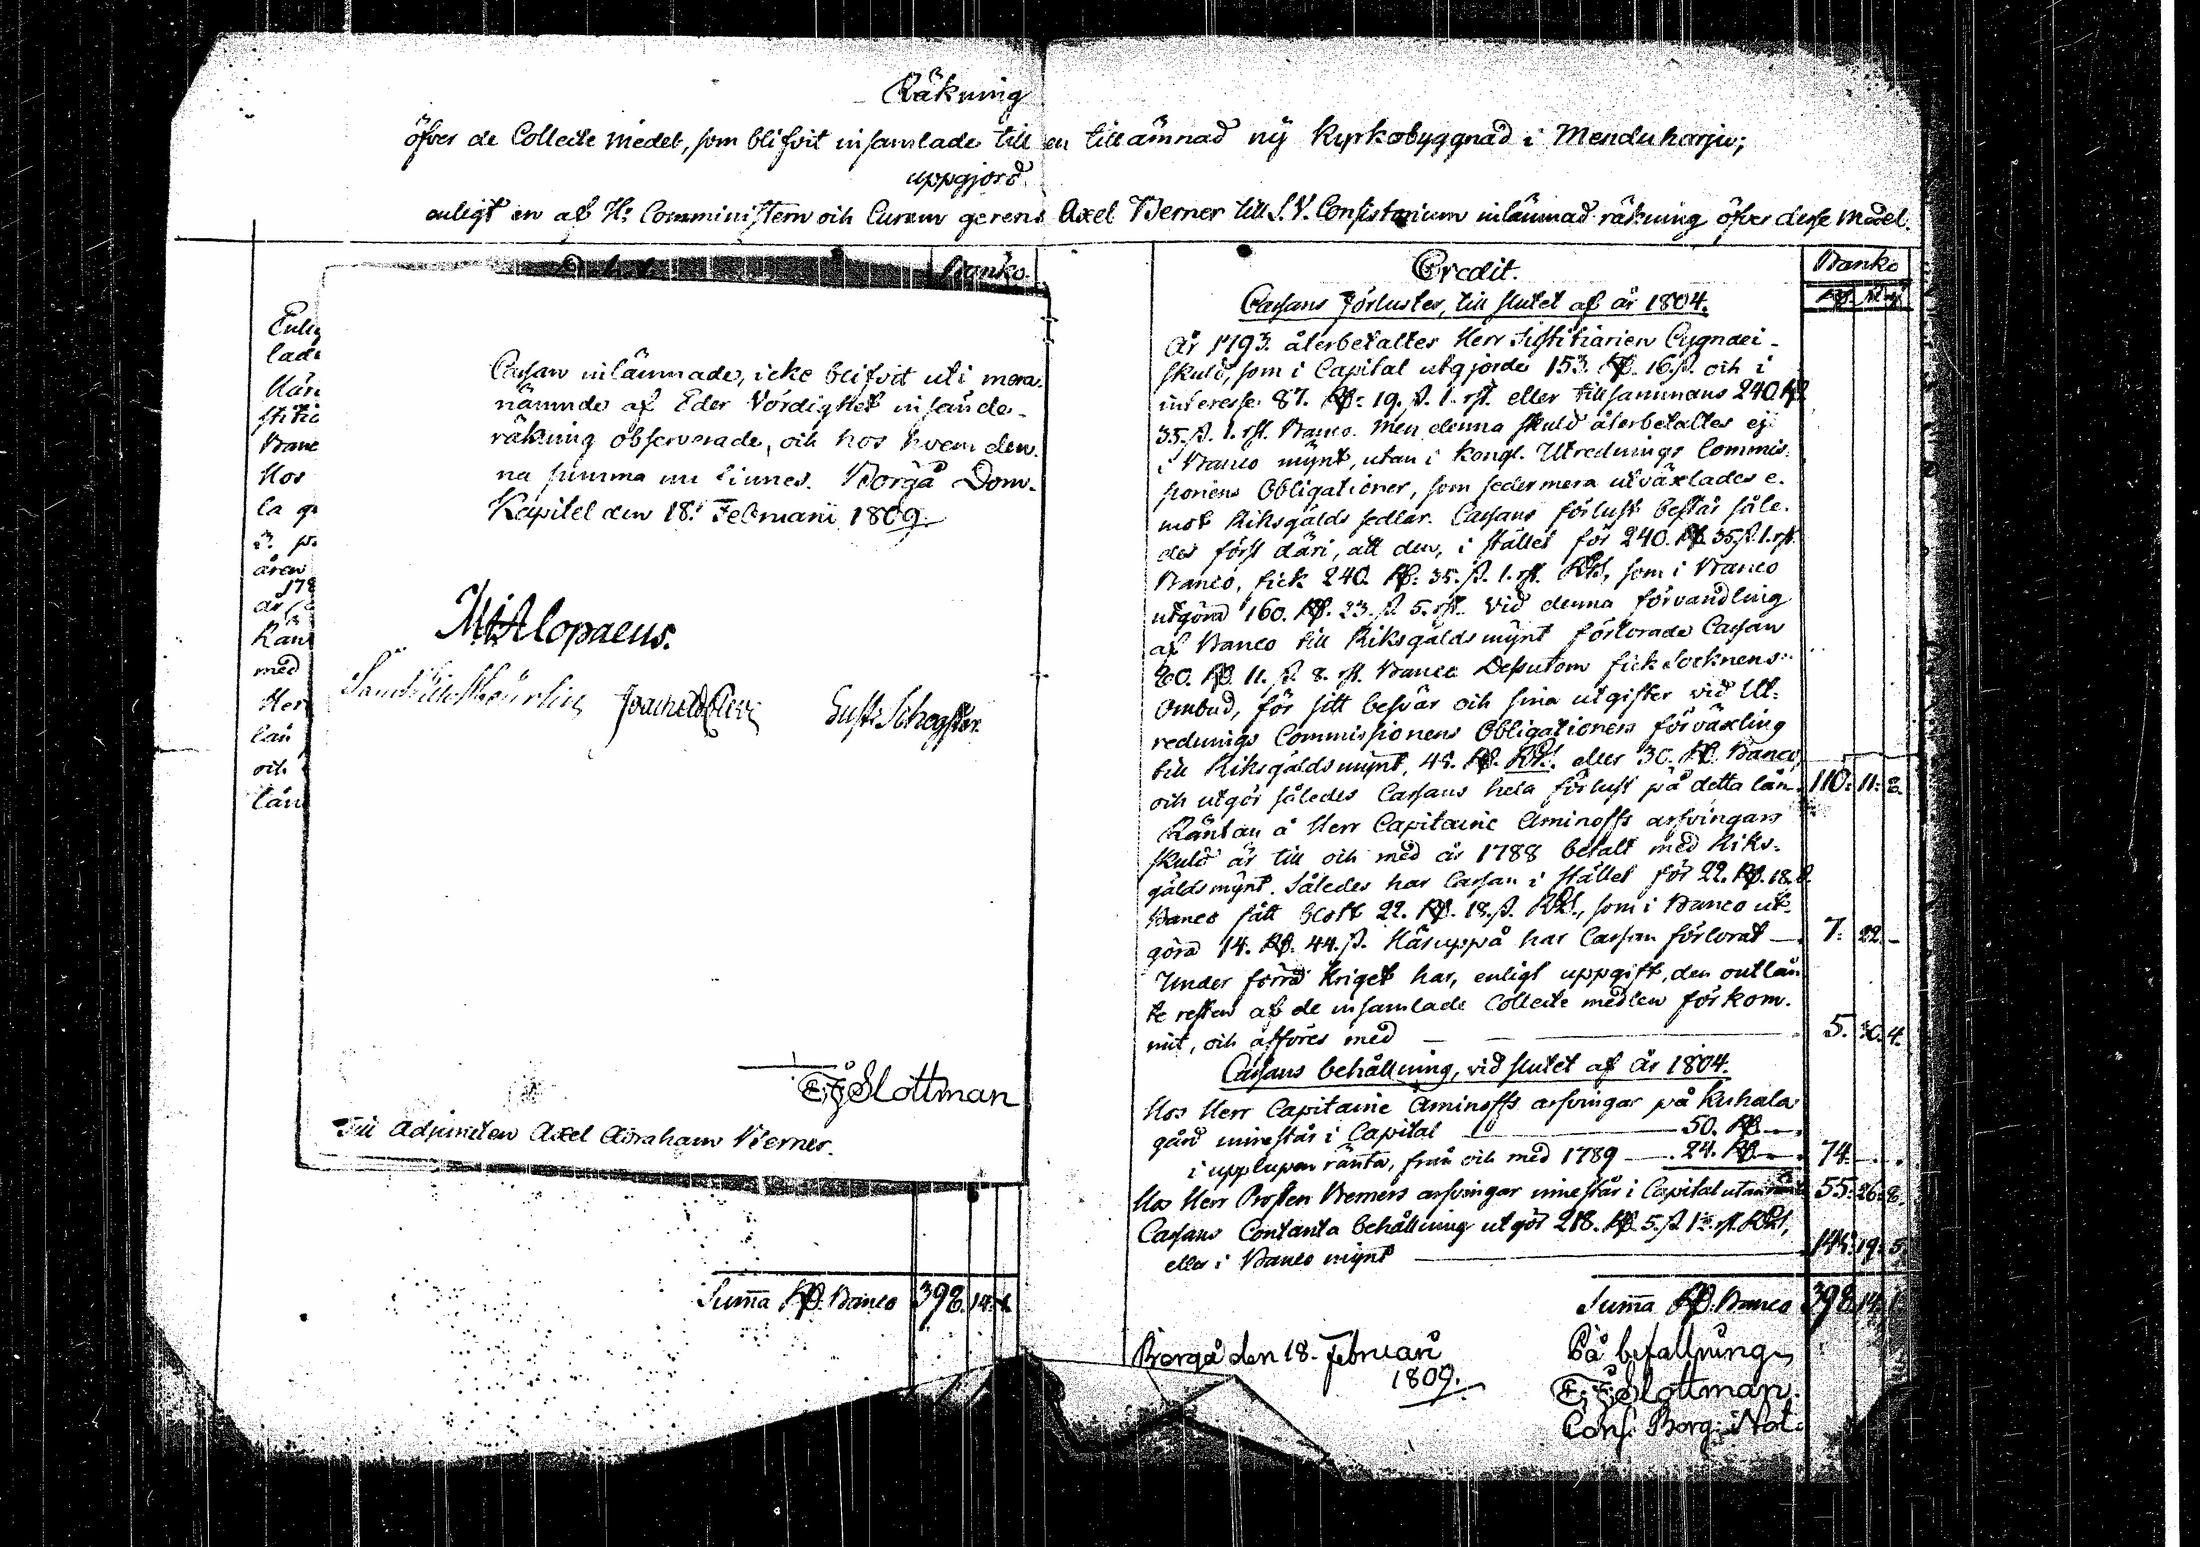 Räkning
öfver de Collecte medel, som blifvit insamlade till en tillämnad ny Kyrkobyggnad i Menduharju;
uppgjord
enligt en af Hr Comministern och Curam gerens Axel Berner till S.V. Consistorium inlämnad räkning öfver desse medel.
Banko.
Cassan inlämnade, icke blifvit uti mera-
nämnde af Eder Vördighet insände
räkning observerade, och hos hvem den-
na summa nu finnes. Borgå Dom-
Kapitel den 18. Februarii 1809
M. Alopaeus.
E. J. Slottman
Till Adjuncten Axel Abraham Berner.
Summa Rd. Banco 398. 14. 1.
Credit. Banko
Cassans förluster, till slutet af år 1804.
År 1793. återbetaltes Herr Justitiarien Cygnaei
skuld, som i Capital utgjorde 153. Rd. 16. ß. och i
interesse 87. Rd. 19. ß. 1. rst. eller tillsammans 240. Rd.
35. ß. 1. rst. Banco. Men denna skuld återbetaltes ej
i Banco mynt, utan i Kongl. Utrednings Commis-
sionens Obligationer, som sedermera utväxlades e-
mot Riksgälds sedlar. Cassans förlust består såle-
des först däri, att den, i stället för 240. Rd. 35. ß. 1. rst.
Banco, fick 240. Rd. 35. ß. 1. rst. RGs, som i Banco
utgöra 160. Rd. 23. ß. 5. rst. Vid denna förvandling
af Banco till Riksgälds mynt förlorade Cassan
80. Rd. 11. ß. 8. rst. Banco Dessutom fick Socknens
Ombud, för sitt besvär och sina utgifter vid Ut-
rednings Commissionens Obligationers förväxling
till Riksgälds mynt, 45. Rd. RGs. eller 30. Rd. Banco,
och utgör således Cassans hela förlust på detta lån 110. 11. 8.
Räntan å Herr Capitaine Aminoffs arfvingars
skuld är till och med år 1788 betalt med Riks-
gäldsmynt. Således har Cassan i stället för 22. Rd. 18. ß.
Banco fått blott 22. Rd. 18. ß. RGs., som i Banco ut-
göra 14. Rd. 44. ß. Häruppå har Cassan förlorat 7. 22. -
Under förra Kriget har, enligt uppgift, den outlån-
te resten af de insamlade Collecte medlen förkom-
mit, och afföres med 5. 30. 4.
Cassans behållning, vid slutet af år 1804.
Hos Herr Capitaine Aminoffs arfvingar på Kuhala
gård innestår i Capital 50. Rd.
i upplupen ränta, från och med 1789 24. Rd. 74.
Hos Herr Prosten Berners arfvingar innestår i Capital utan ränta 55. 26. 8.
Cassans Contanta behållning utgör 218. Rd. 5. ß. 1. rst. RGs,
eller i Banco mynt 145. 19. 5.
Summa Rd. Banco 398. 14. 1.
Borgå den 18. Februarii
1809.
På befallning
E. J. Slottman.
Cons. Borg. Not.